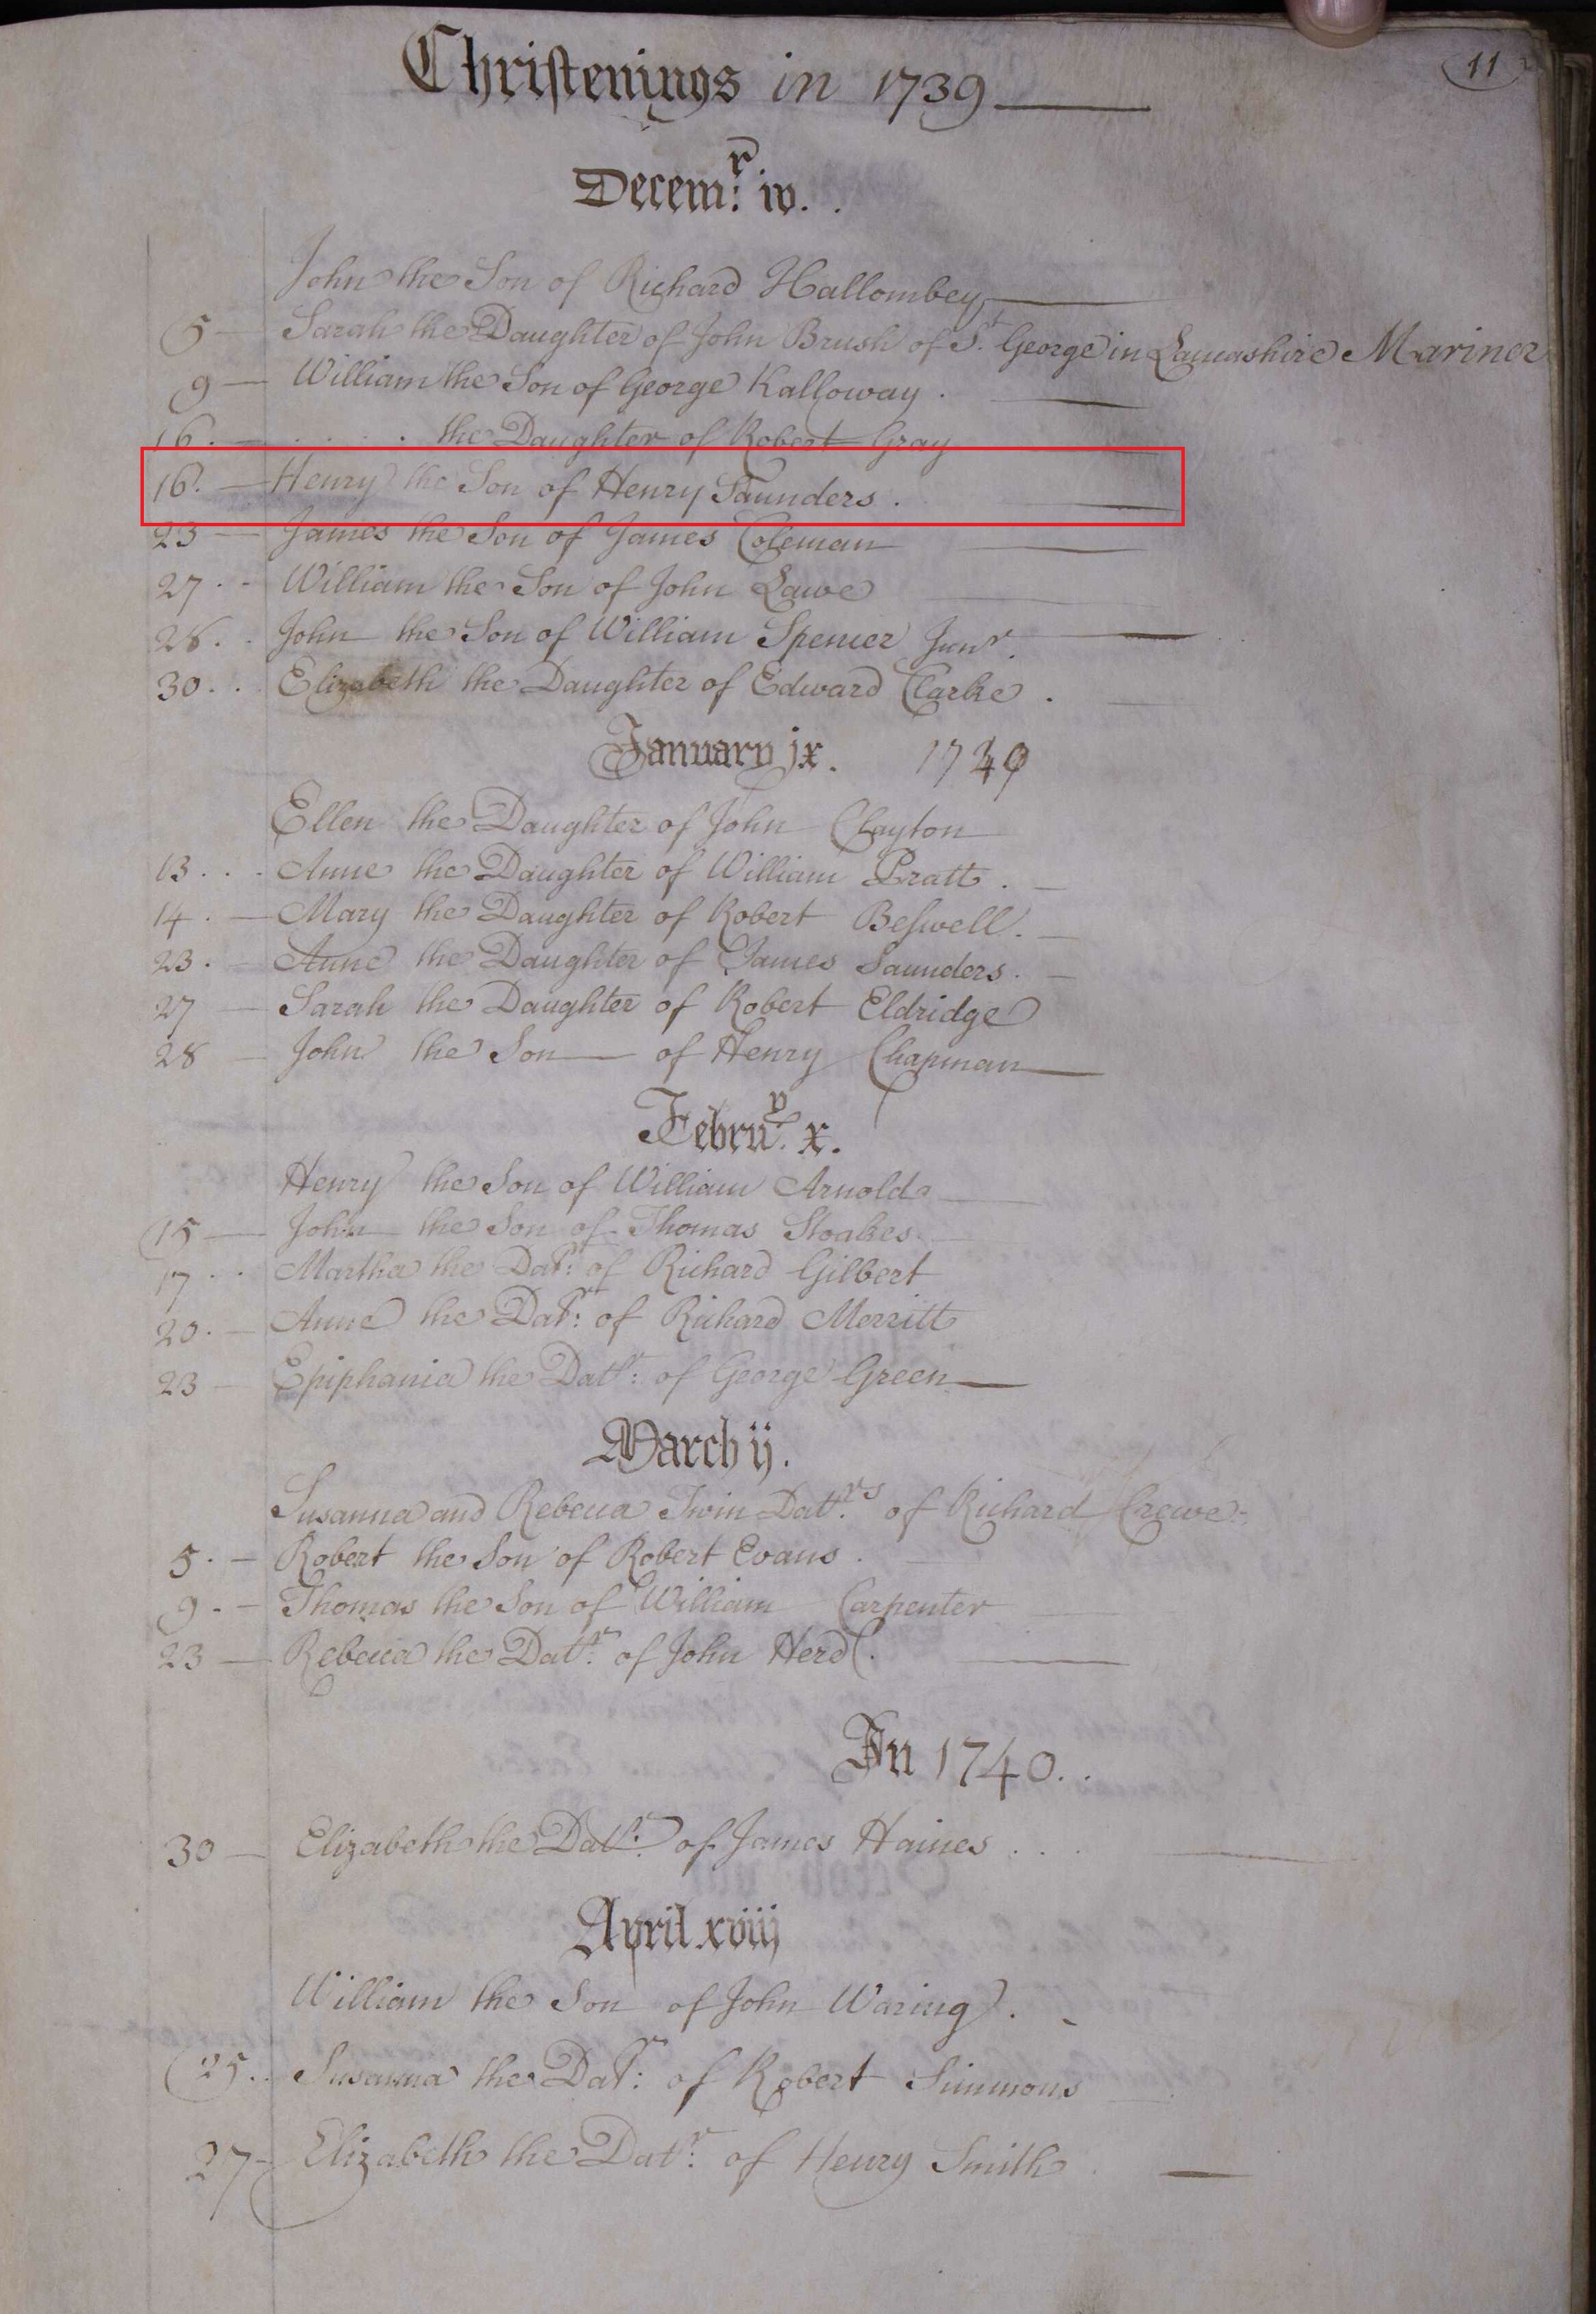 11
Christenings in 1739
Decem:r iv.
John the Son of Richard Hallombey
5 Sarah the Daughter of John Brush of St. George in Lancashire Mariner
9 William the Son of George Kalloway.
16. . . . . the Daughter of Robert Gray
16. Henry the Son of Henry Saunders.
23 James the Son of James Coleman
27. William the Son of John Lawe
28. John the Son of William Spencer Junr.
30. Elizabeth the Daughter of Edward Clarke.
January ix. 1739
Ellen the Daughter of John Clayton
13. Anne the Daughter of William Pratt.
14. Mary the Daughter of Robert Beswell.
23. Anne the Daughter of James Saunders.
27 Sarah the Daughter of Robert Eldridge
28 John the Son of Henry Chapman
Febru:y x.
Henry the Son of William Arnold
15 John the Son of Thomas Stoakes
17 Martha the Datr: of Richard Gilbert
20. Anne the Datr: of Richard Merritt
23 Epiphania the Datr: of George Green
March ij.
Susanna and Rebecca Twin Datrs. of Richard Crewe
5. Robert the Son of Robert Evans.
9. Thomas the Son of William Carpenter
23 Rebecca the Datr: of John Herd.
In 1740..
30 Elizabeth the Datr: of James Haines...
April xviij
William the Son of John Waring.
25. Susanna the Datr: of Robert Simmons
27 Elizabeth the Datr: of Henry Smith